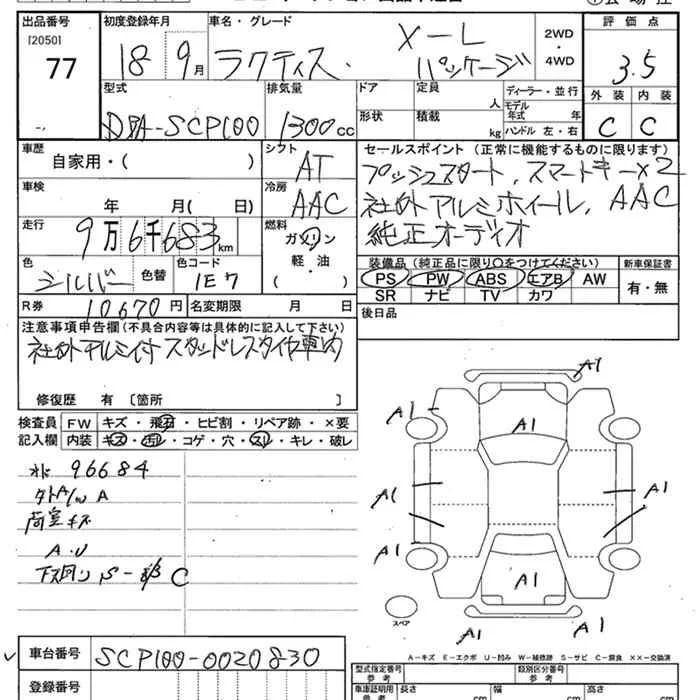 出品番号
[2050]
77
初度登録年月
18 9月
車名・グレード
ラクティス X-L パッケージ
2WD
・
4WD
評価点
3.5
外装 内装
C C
型式
DBA-SCP100
排気量
1300cc
ドア
形状
定員
人
積載
kg
ディーラー・並行
モデル年式 年
ハンドル 左・右
車歴
自家用・( )
シフト
AT
車検
年 月( 日)
冷房
AAC
走行
9万6千683km
燃料
ガソリン
軽・油
( )
色
シルバー
色替
色コード
1E7
R券
10670円
名変期限 月 日
セールスポイント (正常に機能するものに限ります)
プッシュスタート、スマートキー×2
社外アルミホイール、AAC
純正オーディオ
装備品(純正品に限り○をつけてください)
PS PW ABS エアB AW
SR ナビ TV カワ
新車保証書
有・無
後日品
注意事項申告欄(不具合内容等は具体的に記入して下さい)
社外アルミ付スタッドレスタイヤ車内
修復歴 有〔箇所 〕
検査員
記入欄
FW キズ・飛石・ヒビ割・リペア跡・×要
内装 キズ・汚れ・コゲ・穴・スレ・キレ・破レ
96684
荷室キズ
A.U
下廻り S-部 C
A1
A1
A1
A1
A1
A1
A1
A1
A1
A1
スペア
A-キズ E-エクボ U-凹み W-補修跡 S-サビ C-腐食 ××-交換済
車台番号
SCP100-0020830
登録番号
型式指定番号
参考
類別区分番号
参考
車庫証明用
参考
長さ cm
幅 cm
高さ cm